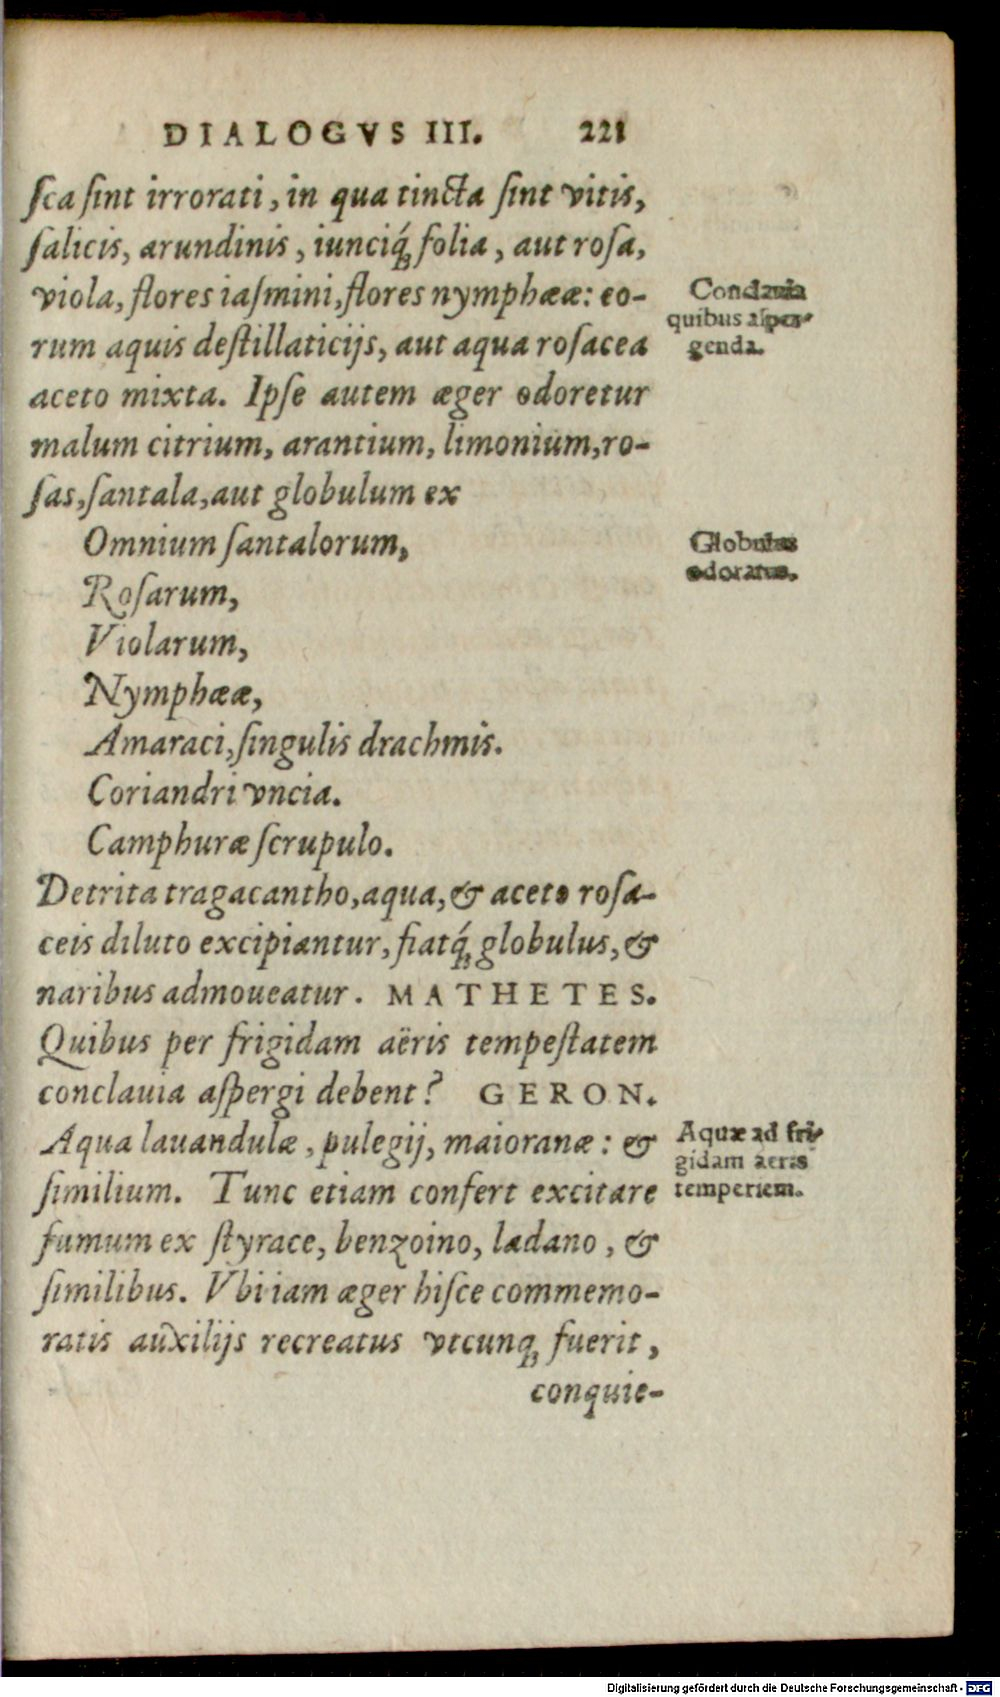 DIALOGVS III. 221
ſca ſint irrorati, in qua tincta ſint vitis,
ſalicis, arundinis, iunciq́; folia, aut roſa,
viola, flores iaſmini, flores nymphææ: eo-
rum aquis deſtillaticijs, aut aqua roſacea
aceto mixta. Ipſe autem æger odoretur
malum citrium, arantium, limonium, ro-
ſas, ſantala, aut globulum ex
Conclauia
quibus aſper-
genda.
Omnium ſantalorum,
Roſarum,
Violarum,
Nymphææ,
Amaraci, ſingulis drachmis.
Coriandri vncia.
Camphuræ ſcrupulo.
Globulus
odoratus.
Detrita tragacantho, aqua, & aceto roſa-
ceis diluto excipiantur, fiatq́; globulus, &
naribus admoueatur. MATHETES.
Quibus per frigidam aëris tempeſtatem
conclauia aſpergi debent? GERON.
Aqua lauandulæ, pulegij, maioranæ: &
ſimilium. Tunc etiam confert excitare
fumum ex ſtyrace, benzoino, ladano, &
ſimilibus. Vbi iam æger hiſce commemo-
ratis auxilijs recreatus vtcunq; fuerit,
Aquæ ad fri-
gidam aeris
temperiem.
conquie-
Digitalisierung gefördert durch die Deutsche Forschungsgemeinschaft - DFG